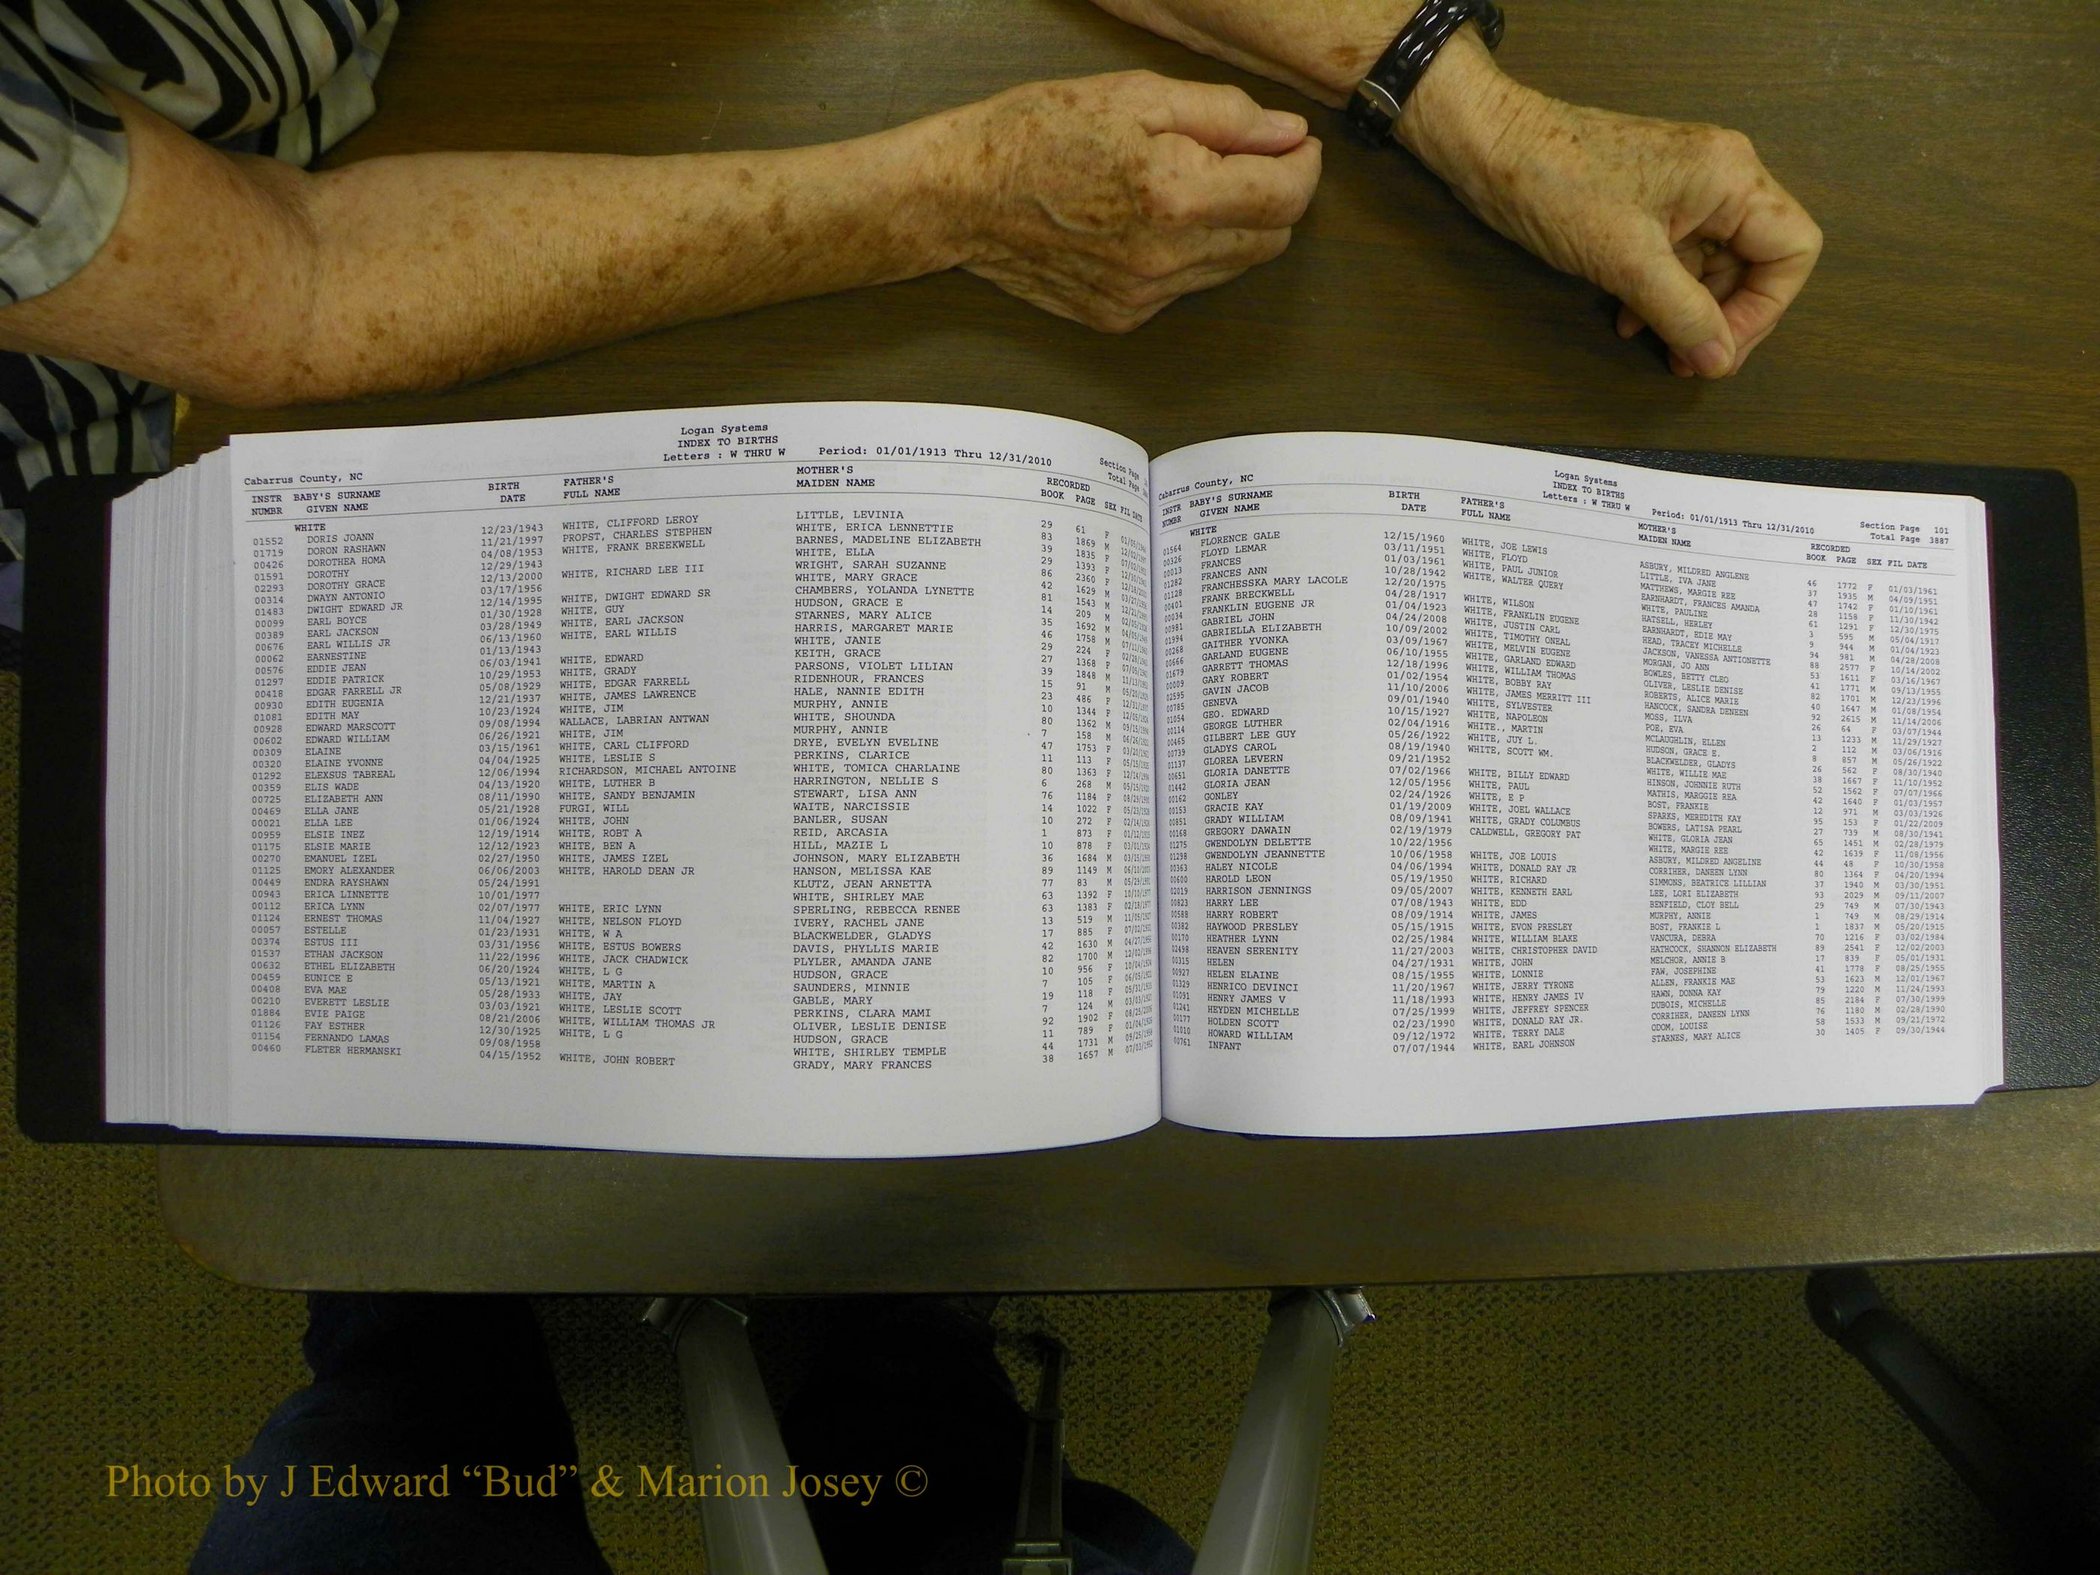 Logan Systems
INDEX TO BIRTHS
Letters : W THRU W Period: 01/01/1913 Thru 12/31/2010
Cabarrus County, NC Section Page
Total Page
INSTR BABY'S SURNAME BIRTH FATHER'S MOTHER'S RECORDED
NUMBR GIVEN NAME DATE FULL NAME MAIDEN NAME BOOK PAGE SEX FIL DATE
WHITE
01552 DORIS JOANN 12/23/1943 WHITE, CLIFFORD LEROY LITTLE, LEVINIA 29 61 F
01719 DORON RASHAWN 11/21/1997 PROPST, CHARLES STEPHEN WHITE, ERICA LENNETTIE 83 1869 M
00426 DOROTHEA HOMA 04/08/1953 WHITE, FRANK BREEKWELL BARNES, MADELINE ELIZABETH 39 1835 F
01591 DOROTHY 12/29/1943 WHITE, ELLA 29 1393 F
02293 DOROTHY GRACE 12/13/2000 WHITE, RICHARD LEE III WRIGHT, SARAH SUZANNE 86 2360 F
00314 DWAYN ANTONIO 03/17/1956 WHITE, MARY GRACE 42 1629 M
01483 DWIGHT EDWARD JR 12/14/1995 WHITE, DWIGHT EDWARD SR CHAMBERS, YOLANDA LYNETTE 81 1543 M
00099 EARL BOYCE 01/30/1928 WHITE, GUY HUDSON, GRACE E 14 209 M
00389 EARL JACKSON 03/28/1949 WHITE, EARL JACKSON STARNES, MARY ALICE 35 1692 M
00676 EARL WILLIS JR 06/13/1960 WHITE, EARL WILLIS HARRIS, MARGARET MARIE 46 1758 M
00062 EARNESTINE 01/13/1943 WHITE, JANIE 29 224 F
00576 EDDIE JEAN 06/03/1941 WHITE, EDWARD KEITH, GRACE 27 1368 F
01297 EDDIE PATRICK 10/29/1953 WHITE, GRADY PARSONS, VIOLET LILIAN 39 1848 M
00418 EDGAR FARRELL JR 05/08/1929 WHITE, EDGAR FARRELL RIDENHOUR, FRANCES 15 91 M
00930 EDITH EUGENIA 12/21/1937 WHITE, JAMES LAWRENCE HALE, NANNIE EDITH 23 486 F
01081 EDITH MAY 10/23/1924 WHITE, JIM MURPHY, ANNIE 10 1344 F
00928 EDWARD MARSCOTT 09/08/1994 WALLACE, LABRIAN ANTWAN WHITE, SHOUNDA 80 1362 M
00602 EDWARD WILLIAM 06/26/1921 WHITE, JIM MURPHY, ANNIE 7 158 M
00309 ELAINE 03/15/1961 WHITE, CARL CLIFFORD DRYE, EVELYN EVELINE 47 1753 F
00320 ELAINE YVONNE 04/04/1925 WHITE, LESLIE S PERKINS, CLARICE 11 113 F
01292 ELEXSUS TABREAL 12/06/1994 RICHARDSON, MICHAEL ANTOINE WHITE, TOMICA CHARLAINE 80 1363 F
00359 ELIS WADE 04/13/1920 WHITE, LUTHER B HARRINGTON, NELLIE S 6 268 M
00725 ELIZABETH ANN 08/11/1990 WHITE, SANDY BENJAMIN STEWART, LISA ANN 76 1184 F
00469 ELLA JANE 05/21/1928 FURGI, WILL WAITE, NARCISSIE 14 1022 F
00021 ELLA LEE 01/06/1924 WHITE, JOHN BANLER, SUSAN 10 272 F
00959 ELSIE INEZ 12/19/1914 WHITE, ROBT A REID, ARCASIA 1 873 F
01175 ELSIE MARIE 12/12/1923 WHITE, BEN A HILL, MAZIE L 10 878 F
00270 EMANUEL IZEL 02/27/1950 WHITE, JAMES IZEL JOHNSON, MARY ELIZABETH 36 1684 M
01125 EMORY ALEXANDER 06/06/2003 WHITE, HAROLD DEAN JR HANSON, MELISSA KAE 89 1149 M
00449 ENDRA RAYSHAWN 05/24/1991 KLUTZ, JEAN ARNETTA 77 83 M
00943 ERICA LINNETTE 10/01/1977 WHITE, SHIRLEY MAE 63 1392 F
00112 ERICA LYNN 02/07/1977 WHITE, ERIC LYNN SPERLING, REBECCA RENEE 63 1383 F
01124 ERNEST THOMAS 11/04/1927 WHITE, NELSON FLOYD IVERY, RACHEL JANE 13 519 M
00057 ESTELLE 01/23/1931 WHITE, W A BLACKWELDER, GLADYS 17 885 F
00374 ESTUS III 03/31/1956 WHITE, ESTUS BOWERS DAVIS, PHYLLIS MARIE 42 1630 M
01537 ETHAN JACKSON 11/22/1996 WHITE, JACK CHADWICK PLYLER, AMANDA JANE 82 1700 M
00632 ETHEL ELIZABETH 06/20/1924 WHITE, L G HUDSON, GRACE 10 956 F
00459 EUNICE E 05/13/1921 WHITE, MARTIN A SAUNDERS, MINNIE 7 105 F
00408 EVA MAE 05/28/1933 WHITE, JAY GABLE, MARY 19 118 F
00210 EVERETT LESLIE 03/03/1921 WHITE, LESLIE SCOTT PERKINS, CLARA MAMI 7 124 M
01884 EVIE PAIGE 08/21/2006 WHITE, WILLIAM THOMAS JR OLIVER, LESLIE DENISE 92 1902 F
01126 FAY ESTHER 12/30/1925 WHITE, L G HUDSON, GRACE 11 789 F
01154 FERNANDO LAMAS 09/08/1958 WHITE, SHIRLEY TEMPLE 44 1731 M
00460 FLETER HERMANSKI 04/15/1952 WHITE, JOHN ROBERT GRADY, MARY FRANCES 38 1657 M
Logan Systems
INDEX TO BIRTHS
Letters : W THRU W Period: 01/01/1913 Thru 12/31/2010
Cabarrus County, NC Section Page 101
Total Page 3887
INSTR BABY'S SURNAME BIRTH FATHER'S MOTHER'S RECORDED
NUMBR GIVEN NAME DATE FULL NAME MAIDEN NAME BOOK PAGE SEX FIL DATE
WHITE
01564 FLORENCE GALE 12/15/1960 WHITE, JOE LEWIS ASBURY, MILDRED ANGLENE 46 1772 F 01/03/1961
00326 FLOYD LEMAR 03/11/1951 WHITE, FLOYD LITTLE, IVA JANE 37 1935 M 04/09/1951
00013 FRANCES 01/03/1961 WHITE, PAUL JUNIOR MATTHEWS, MARGIE REE 47 1742 F 01/10/1961
01282 FRANCES ANN 10/28/1942 WHITE, WALTER QUERY EARNHARDT, FRANCES AMANDA 28 1158 F 11/30/1942
01128 FRANCHESSKA MARY LACOLE 12/20/1975 WHITE, PAULINE 61 1291 F 12/30/1975
00401 FRANK BRECKWELL 04/28/1917 WHITE, WILSON HATSELL, HERLEY 3 595 M 05/04/1917
00034 FRANKLIN EUGENE JR 01/04/1923 WHITE, FRANKLIN EUGENE EARNHARDT, EDIE MAY 9 944 M 01/04/1923
00981 GABRIEL JOHN 04/24/2008 WHITE, JUSTIN CARL HEAD, TRACEY MICHELLE 94 981 M 04/28/2008
01994 GABRIELLA ELIZABETH 10/09/2002 WHITE, TIMOTHY ONEAL JACKSON, VANESSA ANTIONETTE 88 2577 F 10/14/2002
00268 GAITHER YVONKA 03/09/1967 WHITE, MELVIN EUGENE MORGAN, JO ANN 53 1611 F 03/16/1967
00666 GARLAND EUGENE 06/10/1955 WHITE, GARLAND EDWARD BOWLES, BETTY CLEO 41 1771 M 09/13/1955
01679 GARRETT THOMAS 12/18/1996 WHITE, WILLIAM THOMAS OLIVER, LESLIE DENISE 82 1701 M 12/23/1996
00009 GARY ROBERT 01/02/1954 WHITE, BOBBY RAY ROBERTS, ALICE MARIE 40 1647 M 01/08/1954
02595 GAVIN JACOB 11/10/2006 WHITE, JAMES MERRITT III HANCOCK, SANDRA DENEEN 92 2615 M 11/14/2006
00785 GENEVA 09/01/1940 WHITE, SYLVESTER MOSS, ILVA 26 64 F 03/07/1944
01054 GEO. EDWARD 10/15/1927 WHITE, NAPOLEON POE, EVA 13 1233 M 11/29/1927
00114 GEORGE LUTHER 02/04/1916 WHITE., MARTIN MCLAUGHLIN, ELLEN 2 112 M 03/06/1916
00465 GILBERT LEE GUY 05/26/1922 WHITE, JUY L. HUDSON, GRACE E. 8 857 M 05/26/1922
00739 GLADYS CAROL 08/19/1940 WHITE, SCOTT WM. BLACKWELDER, GLADYS 26 562 F 08/30/1940
01137 GLOREA LEVERN 09/21/1952 WHITE, WILLIE MAE 38 1667 F 11/10/1952
00651 GLORIA DANETTE 07/02/1966 WHITE, BILLY EDWARD HINSON, JOHNNIE RUTH 52 1562 F 07/07/1966
01442 GLORIA JEAN 12/05/1956 WHITE, PAUL MATHIS, MARGGIE REA 42 1640 F 01/03/1957
00162 GONLEY 02/24/1926 WHITE, E P BOST, FRANKIE 12 971 M 03/03/1926
00153 GRACIE KAY 01/19/2009 WHITE, JOEL WALLACE SPARKS, MEREDITH KAY 95 153 F 01/22/2009
00851 GRADY WILLIAM 08/09/1941 WHITE, GRADY COLUMBUS BOWERS, LATISA PEARL 27 739 M 08/30/1941
00168 GREGORY DAWAIN 02/19/1979 CALDWELL, GREGORY PAT WHITE, GLORIA JEAN 65 1451 M 02/28/1979
01275 GWENDOLYN DELETTE 10/22/1956 WHITE, MARGIE REE 42 1639 F 11/08/1956
01298 GWENDOLYN JEANNETTE 10/06/1958 WHITE, JOE LOUIS ASBURY, MILDRED ANGELINE 44 48 F 10/30/1958
00363 HALEY NICOLE 04/06/1994 WHITE, DONALD RAY JR CORRIHER, DANEEN LYNN 80 1364 F 04/20/1994
00600 HAROLD LEON 05/19/1950 WHITE, RICHARD SIMMONS, BEATRICE LILLIAN 37 1940 M 03/30/1951
02019 HARRISON JENNINGS 09/05/2007 WHITE, KENNETH EARL LEE, LORI ELIZABETH 93 2029 M 09/11/2007
00823 HARRY LEE 07/08/1943 WHITE, EDD BENFIELD, CLOY BELL 29 749 M 07/30/1943
00588 HARRY ROBERT 08/09/1914 WHITE, JAMES MURPHY, ANNIE 1 749 M 08/29/1914
00382 HAYWOOD PRESLEY 05/15/1915 WHITE, EVON PRESLEY BOST, FRANKIE L 1 1837 M 05/20/1915
00170 HEATHER LYNN 02/25/1984 WHITE, WILLIAM BLAKE VANCURA, DEBRA 70 1216 F 03/02/1984
02498 HEAVEN SERENITY 11/27/2003 WHITE, CHRISTOPHER DAVID HATHCOCK, SHANNON ELIZABETH 89 2541 F 12/02/2003
00315 HELEN 04/27/1931 WHITE, JOHN MELCHOR, ANNIE B 17 839 F 05/01/1931
00927 HELEN ELAINE 08/15/1955 WHITE, LONNIE FAW, JOSEPHINE 41 1778 F 08/25/1955
01329 HENRICO DEVINCI 11/20/1967 WHITE, JERRY TYRONE ALLEN, FRANKIE MAE 53 1623 M 12/01/1967
01091 HENRY JAMES V 11/18/1993 WHITE, HENRY JAMES IV HAWN, DONNA KAY 79 1220 M 11/24/1993
01241 HEYDEN MICHELLE 07/25/1999 WHITE, JEFFREY SPENCER DUBOIS, MICHELLE 85 2184 F 07/30/1999
00177 HOLDEN SCOTT 02/23/1990 WHITE, DONALD RAY JR. CORRIHER, DANEEN LYNN 76 1180 M 02/28/1990
01010 HOWARD WILLIAM 09/12/1972 WHITE, TERRY DALE ODOM, LOUISE 58 1533 M 09/21/1972
00761 INFANT 07/07/1944 WHITE, EARL JOHNSON STARNES, MARY ALICE 30 1405 F 09/30/1944
Photo by J Edward “Bud” & Marion Josey ©